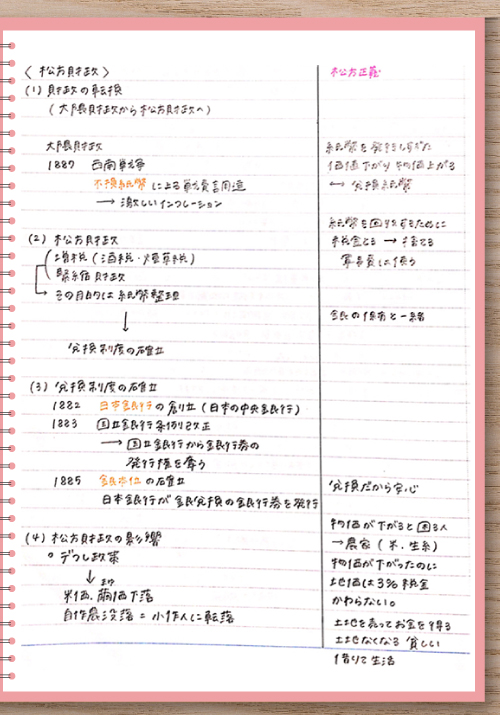 〈 松方財政 〉
(1) 財政の転換
(大隈財政から松方財政へ)
大隈財政
1887 西南戦争
不換紙幣 による戦費調達
→ 激しいインフレーション
(2) 松方財政
増税 (酒税・煙草税)
緊縮財政
その目的は 紙幣整理
↓
兌換制度の確立
(3) 兌換制度の確立
1882 日本銀行の創立 (日本の中央銀行)
1883 国立銀行条例改正
→ 国立銀行から銀行券の
発行権を奪う
1885 銀本位の確立
日本銀行が銀兌換の銀行券を発行
(4) 松方財政の影響
° デフレ政策
↓ まゆ
米価、繭価下落
自作農没落 = 小作人に転落
松方正義
紙幣を発行しすぎた
価値下がり 物価上がる
↔ 兌換紙幣
紙幣を回収するために
税金とる → 捨てる
軍事費には使う
金民の価値と一緒
兌換だから安心
物価が下がると困る人
→ 農家 (米・生糸)
物価が下がったのに
地価は3%税金
かわらない。
土地を売ってお金を得る
土地なくなる 貧しい
借りて生活